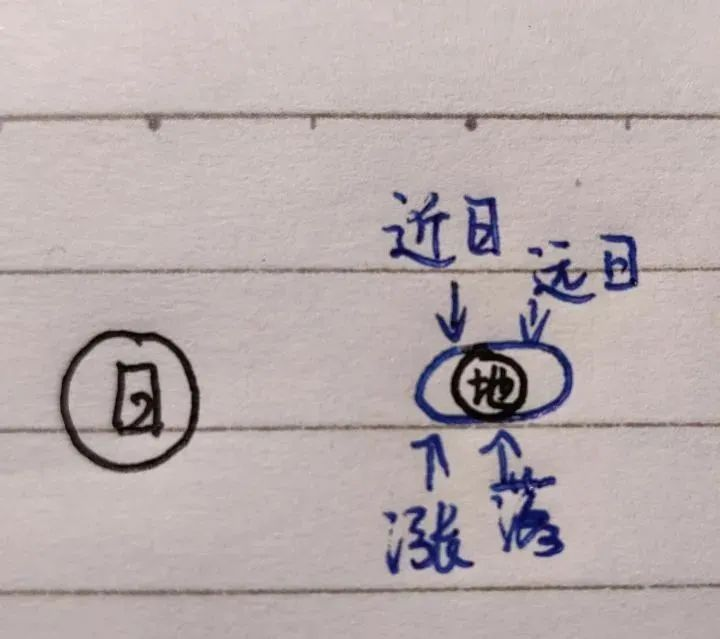 近日
远日
日
地
涨
落